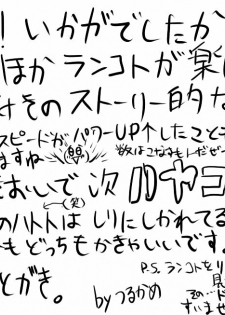 ！いかがでしたか
ほか ランコトが楽
みそのストーリー的な
スピードが パワーUP↑したことも
ますね
数はこなすもんだぜー
をおいて 次 ルヤコ
(笑)
のハトトは しりにしかれてる
もどっちもかきゃいいです。
とがき。
P.S. ランコトをリ
by つるかめ
その…ド
すいませ